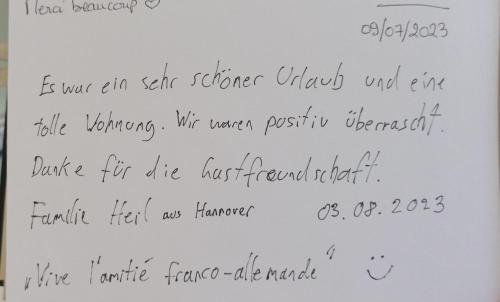 Merci beaucoup ♡
09/07/2023
Es war ein sehr schöner Urlaub und eine
tolle Wohnung. Wir waren positiv überrascht.
Danke für die Gastfreundschaft.
Familie Heil aus Hannover 03.08.2023
„Vive l'amitié franco-allemande" :)